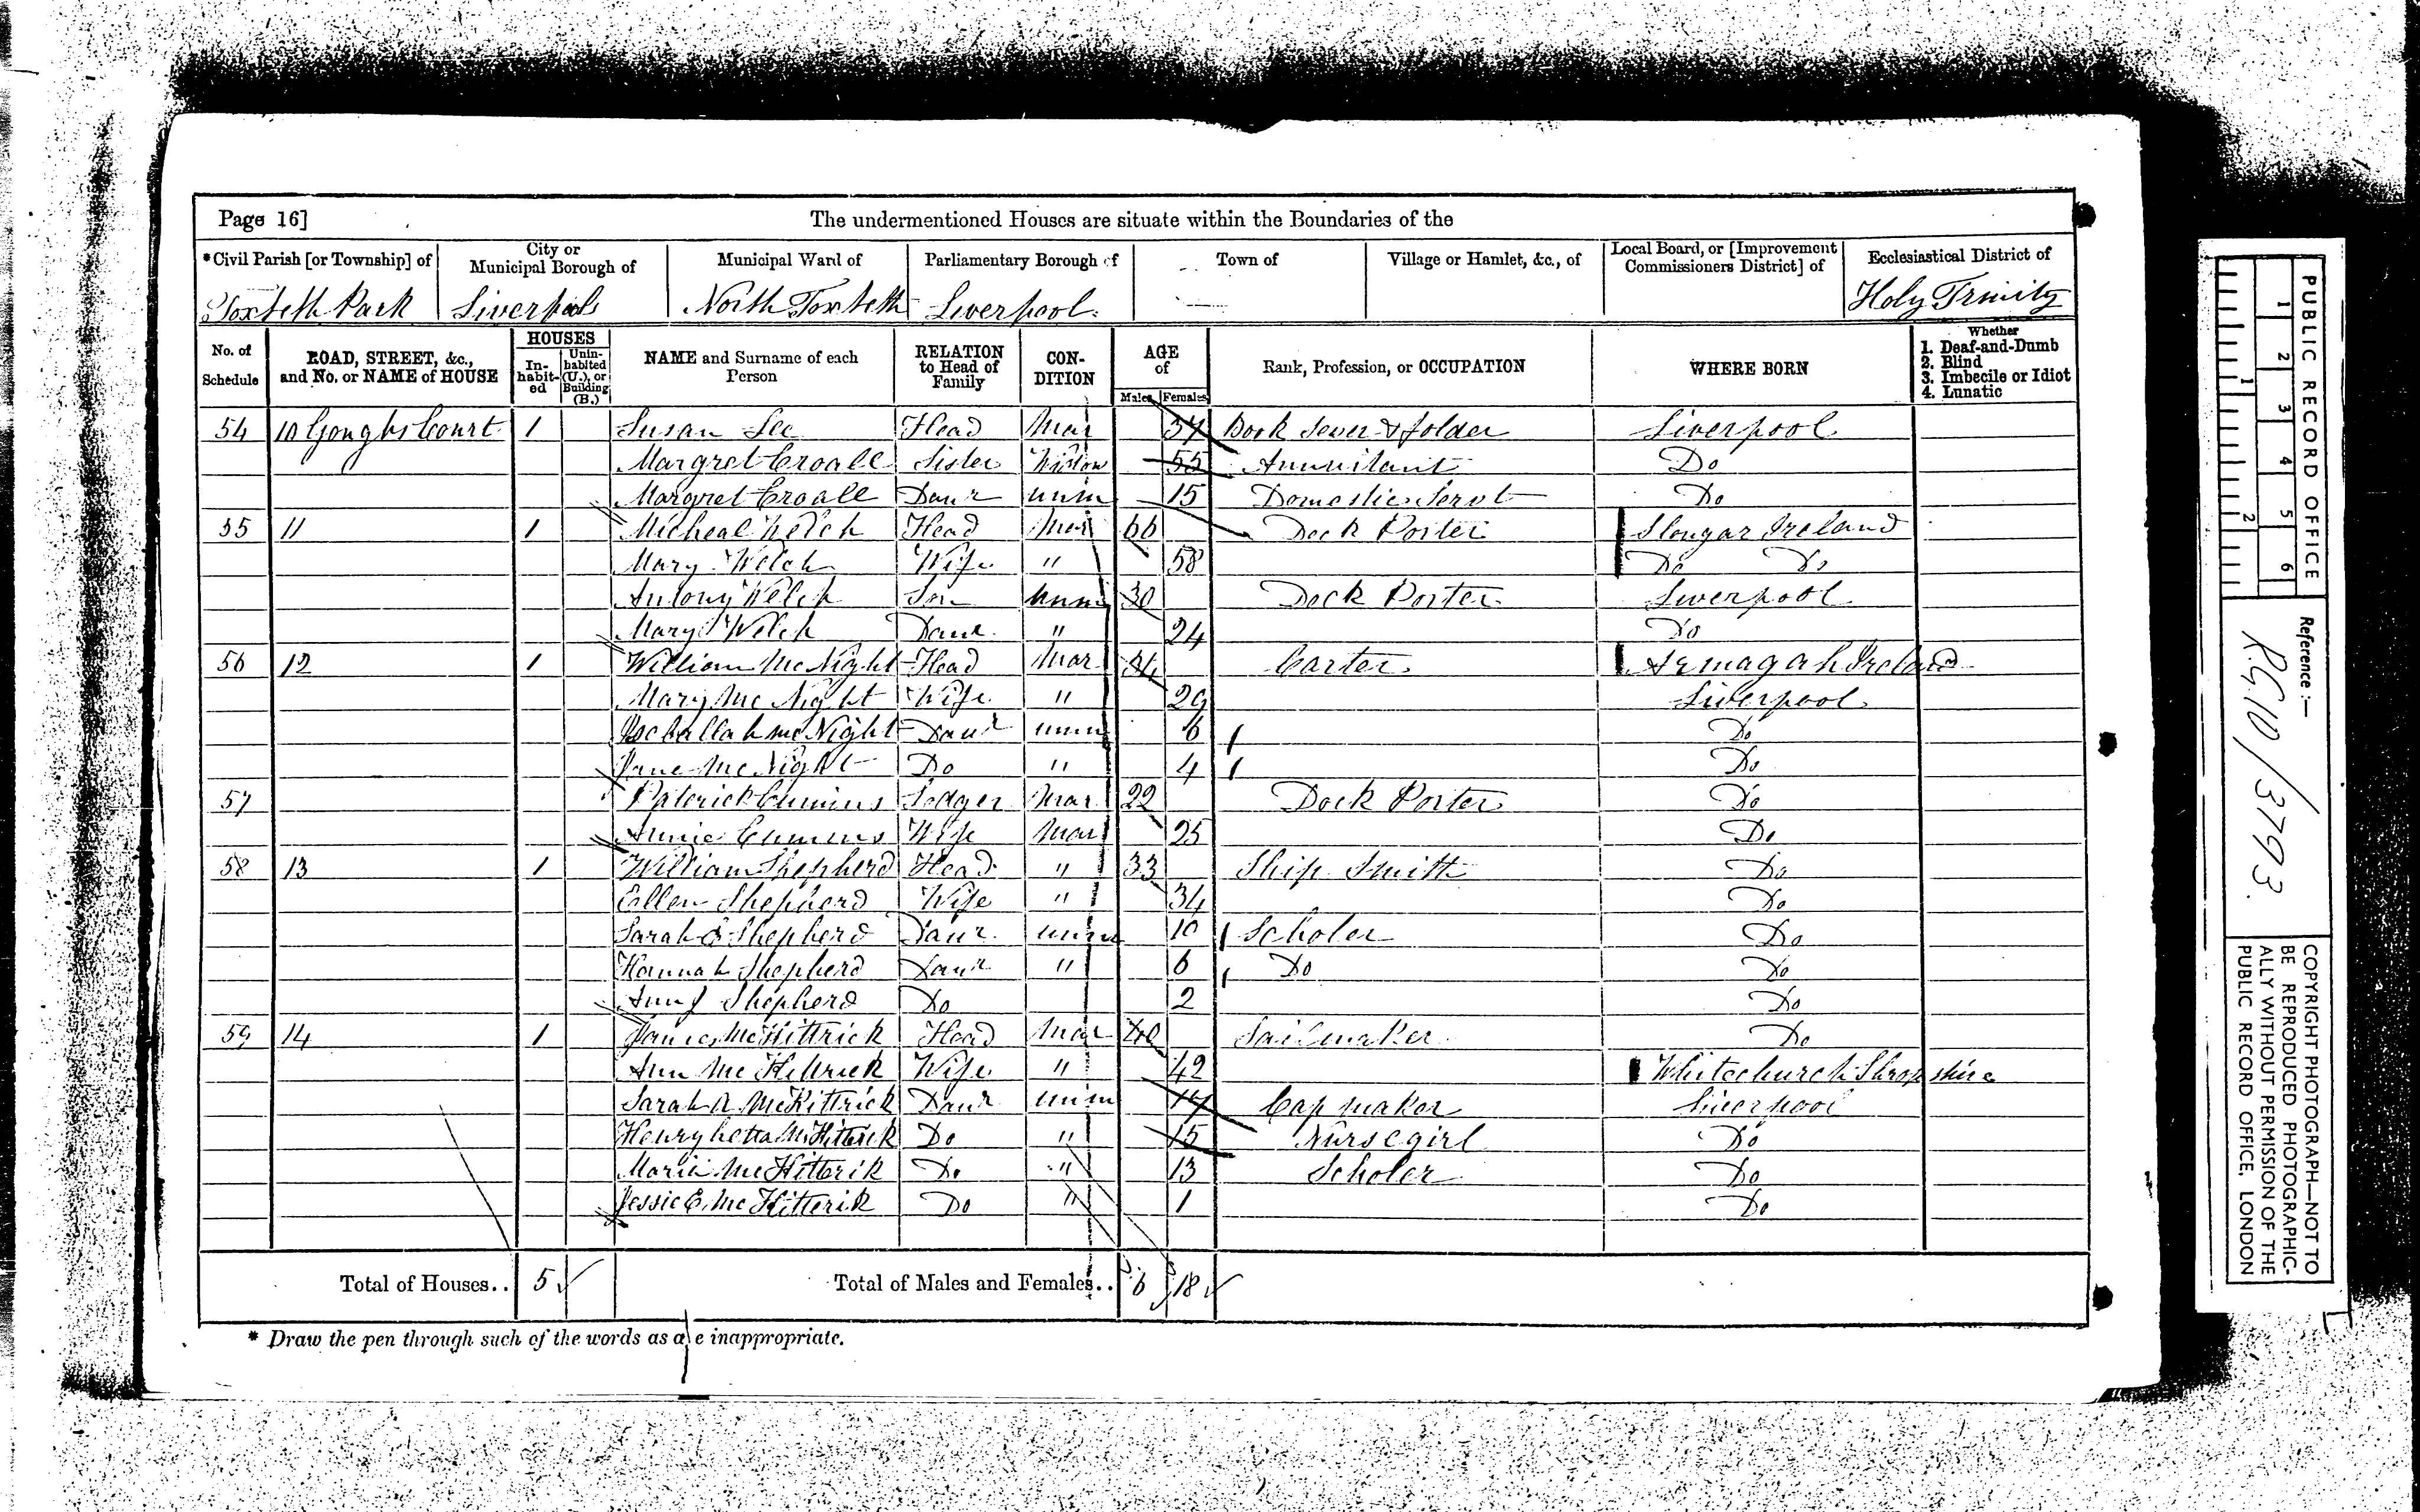 Page 16]
The undermentioned Houses are situate within the Boundaries of the
*Civil Parish [or Township] of City or Municipal Borough of Municipal Ward of Parliamentary Borough of Town of Village or Hamlet, &c., of Local Board, or [Improvement Commissioners District] of Ecclesiastical District of
Toxteth Park Liverpool North Toxteth Liverpool. Holy Trinity
No. of Schedule ROAD, STREET, &c., and No. or NAME of HOUSE HOUSES In-habit-ed Unin-habited (U.), or Building (B.) NAME and Surname of each Person RELATION to Head of Family CON-DITION AGE of Males Females Rank, Profession, or OCCUPATION WHERE BORN Whether 1. Deaf-and-Dumb 2. Blind 3. Imbecile or Idiot 4. Lunatic
54 10 Goughs Court 1 Susan Lee Head Mar 37 Book Sewer & folder Liverpool
Margret Croall Sister Widow 55 Annuitant Do
Margret Croall Daur unm 15 Domestic Servt Do
55 11 1 Micheal Welch Head Mar 66 Dock Porter Ireland
Mary Welch Wife " 58 Do Do
Antony Welch Son unm 30 Dock Porter Liverpool
Mary Welch Daur " 24 Do
56 12 1 William McNight Head Mar 34 Carter Armagah Ireland
Mary McNight Wife " 29 Liverpool
Isaballah McNight Daur unm 6 Do
Jane McNight Do " 4 Do
57 Paterick Cummins Lodger Mar 22 Dock Porter Do
Annie Cummins Wife Mar 25 Do
58 13 1 William Shepherd Head " 33 Ship Smith Do
Ellen Shepherd Wife " 34 Do
Sarah E Shepherd Daur unm 10 Scholer Do
Hannah Shepherd Daur " 6 Do Do
Ann J Shepherd Do 2 Do
59 14 1 James McKittrick Head Mar 40 Sailmaker Do
Ann McKittrick Wife " 42 Whitechurch Shropshire
Sarah A McKittrick Daur unm 17 Cap maker Liverpool
Henryhetta McKitterick Do " 15 Nursegirl Do
Maria McKitterik Do " 13 Scholer Do
Jessie E. McKitterik Do " 1 Do
Total of Houses.. 5 Total of Males and Females.. 6 18
* Draw the pen through such of the words as are inappropriate.
PUBLIC RECORD OFFICE
1 2 3 4 5 6
1 2
Reference :—
R.G. 10/3793.
COPYRIGHT PHOTOGRAPH—NOT TO
BE REPRODUCED PHOTOGRAPHIC-
ALLY WITHOUT PERMISSION OF THE
PUBLIC RECORD OFFICE, LONDON